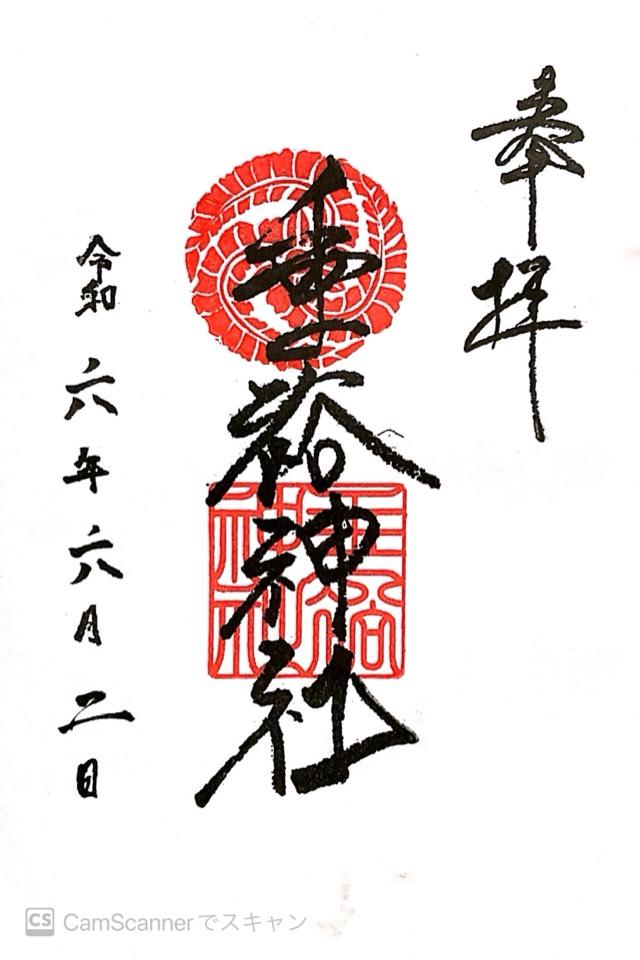 奉拝
重裕神社
重裕
神社
令和六年六月二日
CS CamScannerでスキャン